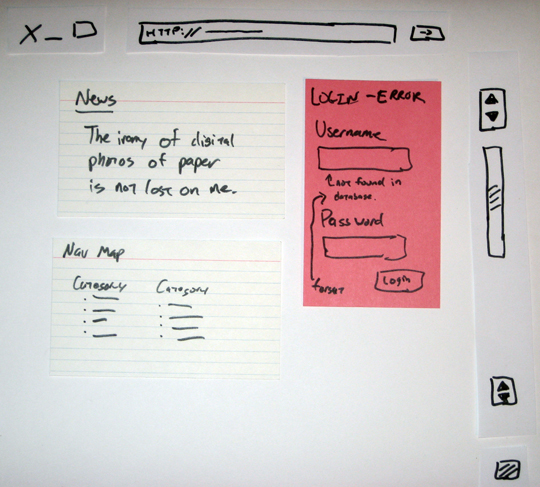 X _ D
HTTP://
News
The irony of digital
photos of paper
is not lost on me.
Nav Map
Category Category
LOGIN - ERROR
Username
not found in
database.
Password
Login
forgot